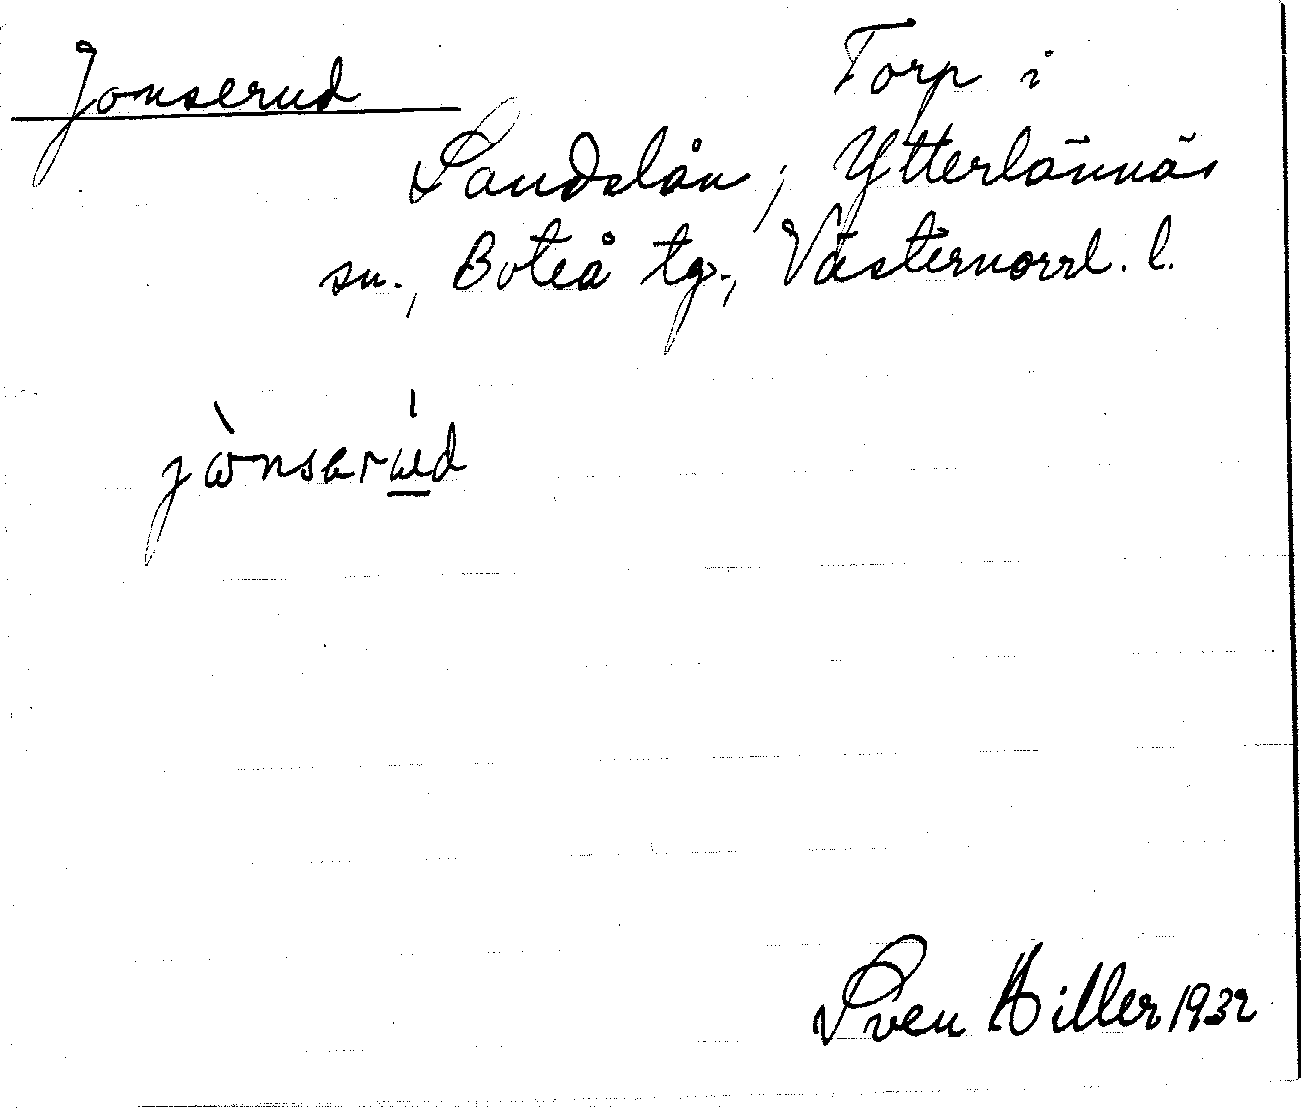 Jonserud
Torp i
Sandslån, Ytterlännäs
sn., Boteå tg., Västernorrl. l.
jònserúd
Sven Hiller 1932